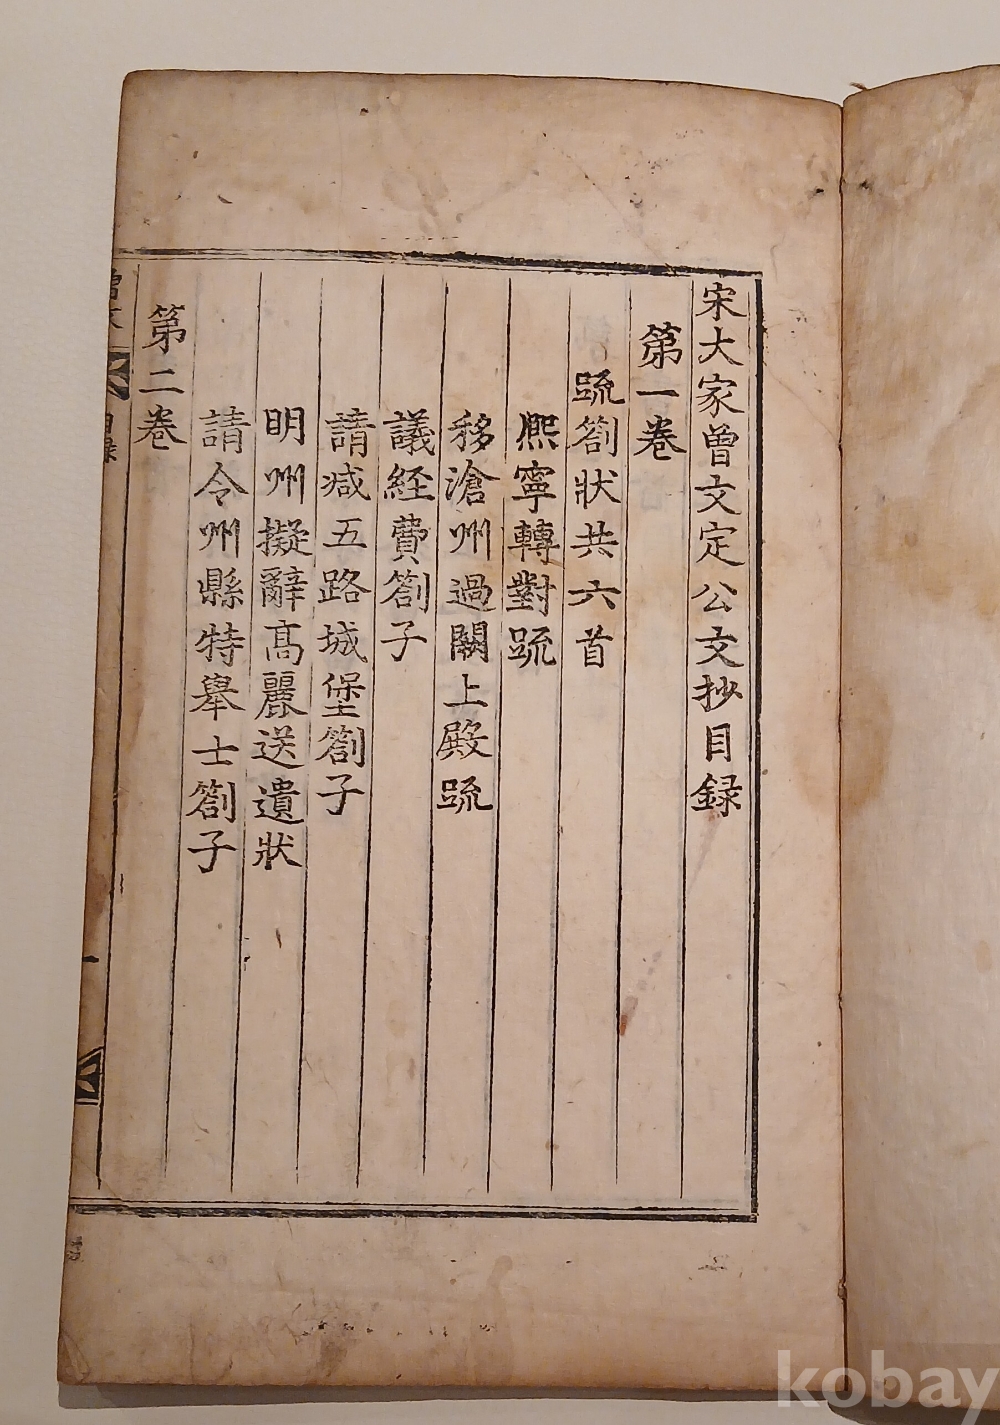 宋大家曾文定公文抄目録
第一巻
疏劄状共六首
熈寧轉對疏
移滄州過闕上殿疏
議経費劄子
請减五路城堡劄子
明州擬辭高麗送遺狀
請令州縣特舉士劄子
第二巻
曾文
目録
一
kobay